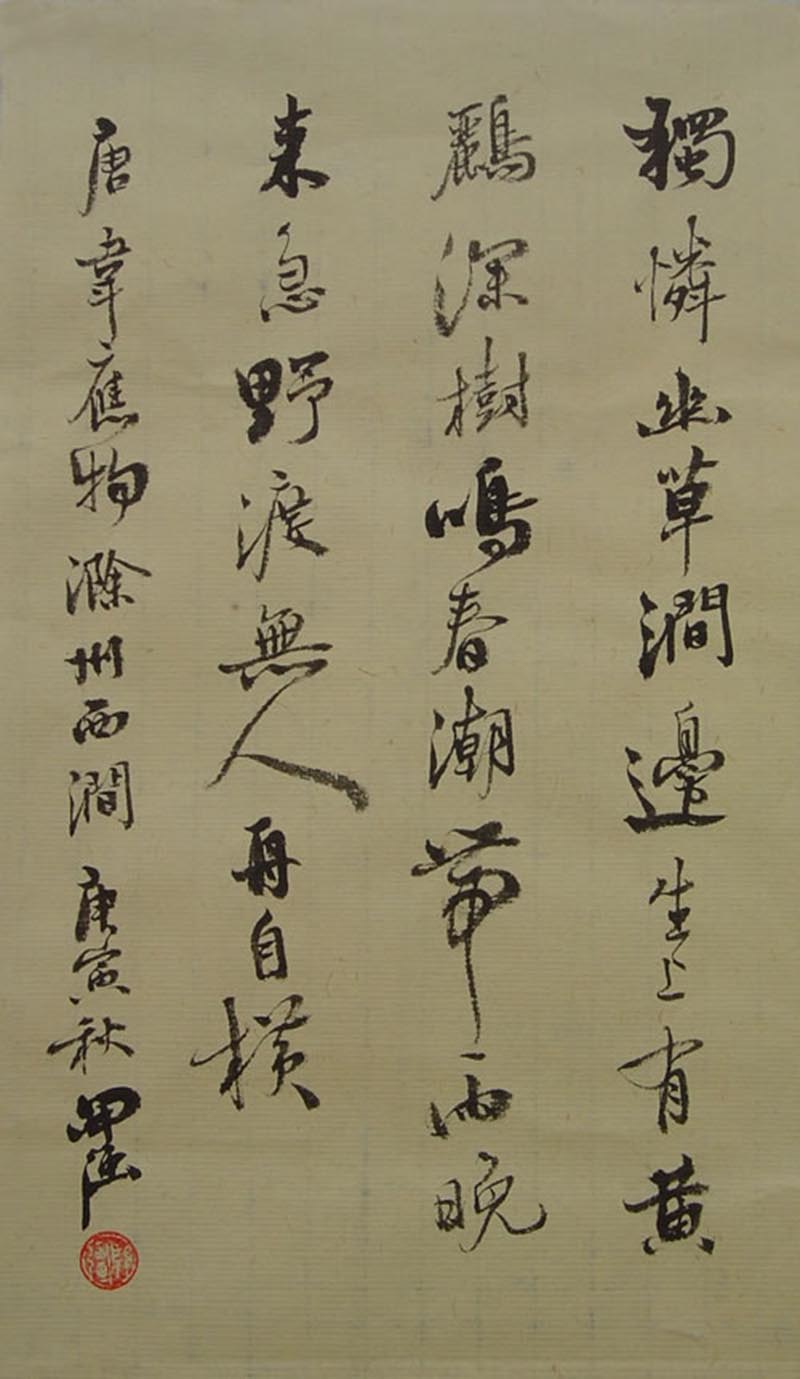 獨憐幽草澗邊生上有黃
鸝深樹鳴春潮帶雨晚
来急野渡無人舟自橫
唐韋應物滁州西澗庚寅秋